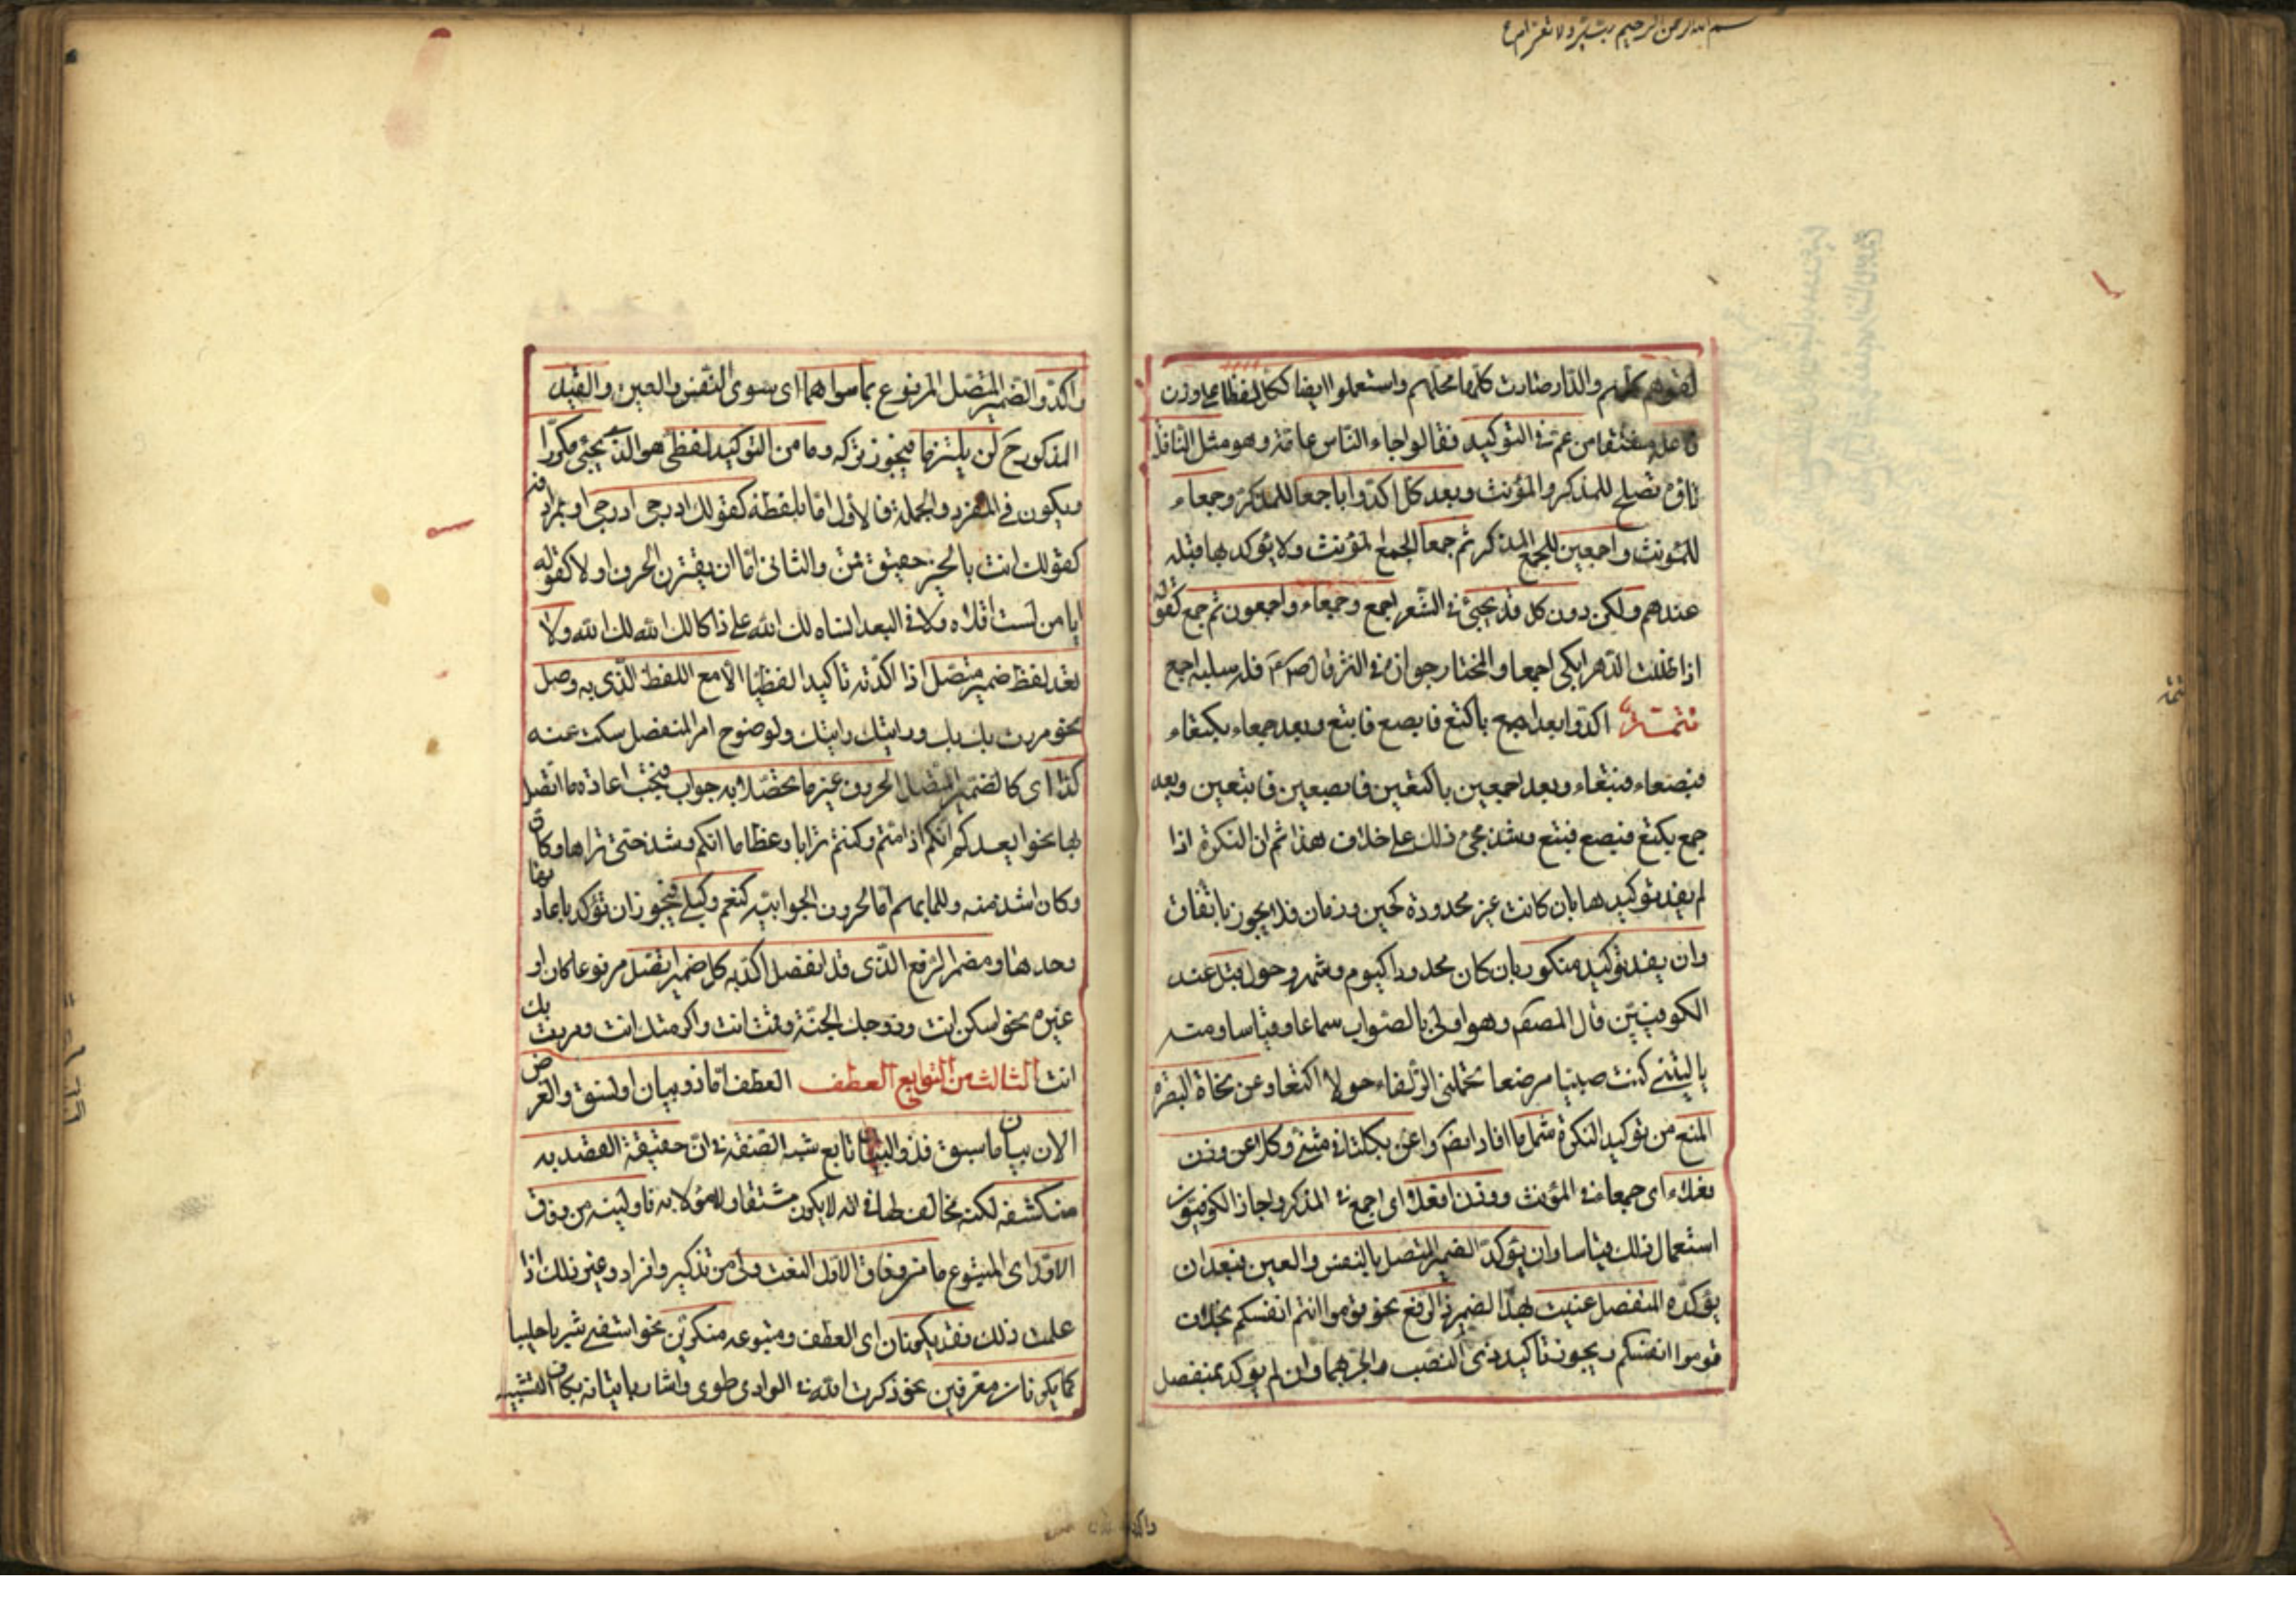 بسم الله الرحمن الرحيم رب يسر ولا تعسر
لقوهم كلهم والدار صارت كلها محلهم واستعملوا ايضا ككل لفظا على وزن
فاعله مشتقا من عم في التوكيد فقالوا جاء الناس عامة وهو مثل النافلة
تاؤه تصلح للمذكر والمؤنث وبعد كل اكدوا باجمعا للمذكر وجمعاء
للمؤنث واجمعين للجمع المذكر ثم جمعا لجمع المؤنث ولا يؤكد بها قبله
عندهم ولكن دون كل قد يجئ في الشعر اجمع وجمعاء واجمعون ثم جمع كقوله
اذا ظللت الدهر ابكى اجمعا والمختار جوازه في النثر قال فله سلبه اجمع
تتمة اكدوا بعد اجمع باكتع فابصع فابتع وبعد جمعاء بكتعاء
فبصعاء فبتعاء وبعد اجمعين باكتعين فابصعين فابتعين وبعد
جمع بكتع فبصع فبتع وشذ مجئ ذلك على خلاف هذا ثم ان النكرة اذا
لم يفد توكيدها بان كانت غير محدودة كحين وزمان فلا يجوز باتفاق
وان يفد توكيد منكور بان كان محدودا كيوم وشهر وحول قبل عند
الكوفيين قال المصنف وهو اولى بالصواب سماعا وقياسا ومنه
ياليتني كنت صبيا مرضعا تحملني الذلفاء حولا اكتعا وعن نحاة البصره
المنع من توكيد النكرة شمل ما افاد ايضا واغن بكلتا في مثنى وكلا عن وزن
فعلاء اى جمعاء في المؤنث ووزن افعلا اى اجمع في المذكر واجاز الكوفيون
استعمال ذلك قياسا وان يؤكد الضمير المتصل بالنفس والعين فبعد ان
يؤكده المنفصل عنيت بهذا الضمير ذا الرفع نحو قوموا انتم انفسكم بخلاف
قوموا انفسكم ويجوز تاكيد ذى النصب والجر بهما وان لم يؤكد بمنفصل
واكدوا الضمير المتصل المرفوع بما سواهما اى سوى النفس والعين والقيد
المذكور ح لن يلتزما فيجوز تركه وما من التوكيد لفظى هو الذى يجئ مكررا
ويكون في المفرد والجملة فالاول اما بلفظه كقولك ادرجى ادرجى او بمرادفه
كقولك انت بالخير حقيق قمن والثانى اما ان يقترن بحرف اولا كقوله
ايا من لست اقلاه ولا في البعد انساه لك الله على ذاكا لك الله لك الله ولا
تعد لفظ ضمير متصل اذا اكدته تاكيدا لفظيا الا مع اللفظ الذى به وصل
نحو مررت بك بك ورايتك رايتك ولوضوح امر المنفصل سكت عنه
كذا اى كالضمير المتصل الحروف غير ما تحصلا به جواب فيجب اعادة ما اتصل
بها نحو ايعدكم انكم اذا متم وكنتم ترابا وعظاما انكم وشذ حتى تراها وكان
وكان اشد منه وللما بهم اما الحروف الجوابيه كنعم وكبلى فيجوز ان تؤكد باعادتها
وحدها ومضمر الرفع الذى قد انفصل اكد به كل ضمير اتصل مرفوعا كان او
غيره نحو اسكن انت وزوجك الجنة وقمت انت واكرمتك انت ومررت بك
انت الثالث من التوابع العطف العطف اما ذو بيان او نسق والغرض
الان بيان ما سبق فذو البيان تابع شبه الصفة في ان حقيقة القصد به
منكشفه لكنه مخالف لها في انه لا يكون مشتقا ولا مؤولا به فاولينه من وفاق
الاول اى المتبوع ما من وفاق الاول النعت ولى من تذكير وافراد وغير ذلك اذا
علمت ذلك فقد يكونان اى العطف ومتبوعه منكرين نحو اسقنى شربا حليبا
كما يكونان معرفين نحو ذكرت الله في الوادى طوى واشار باتيانه بكاف التشبيه